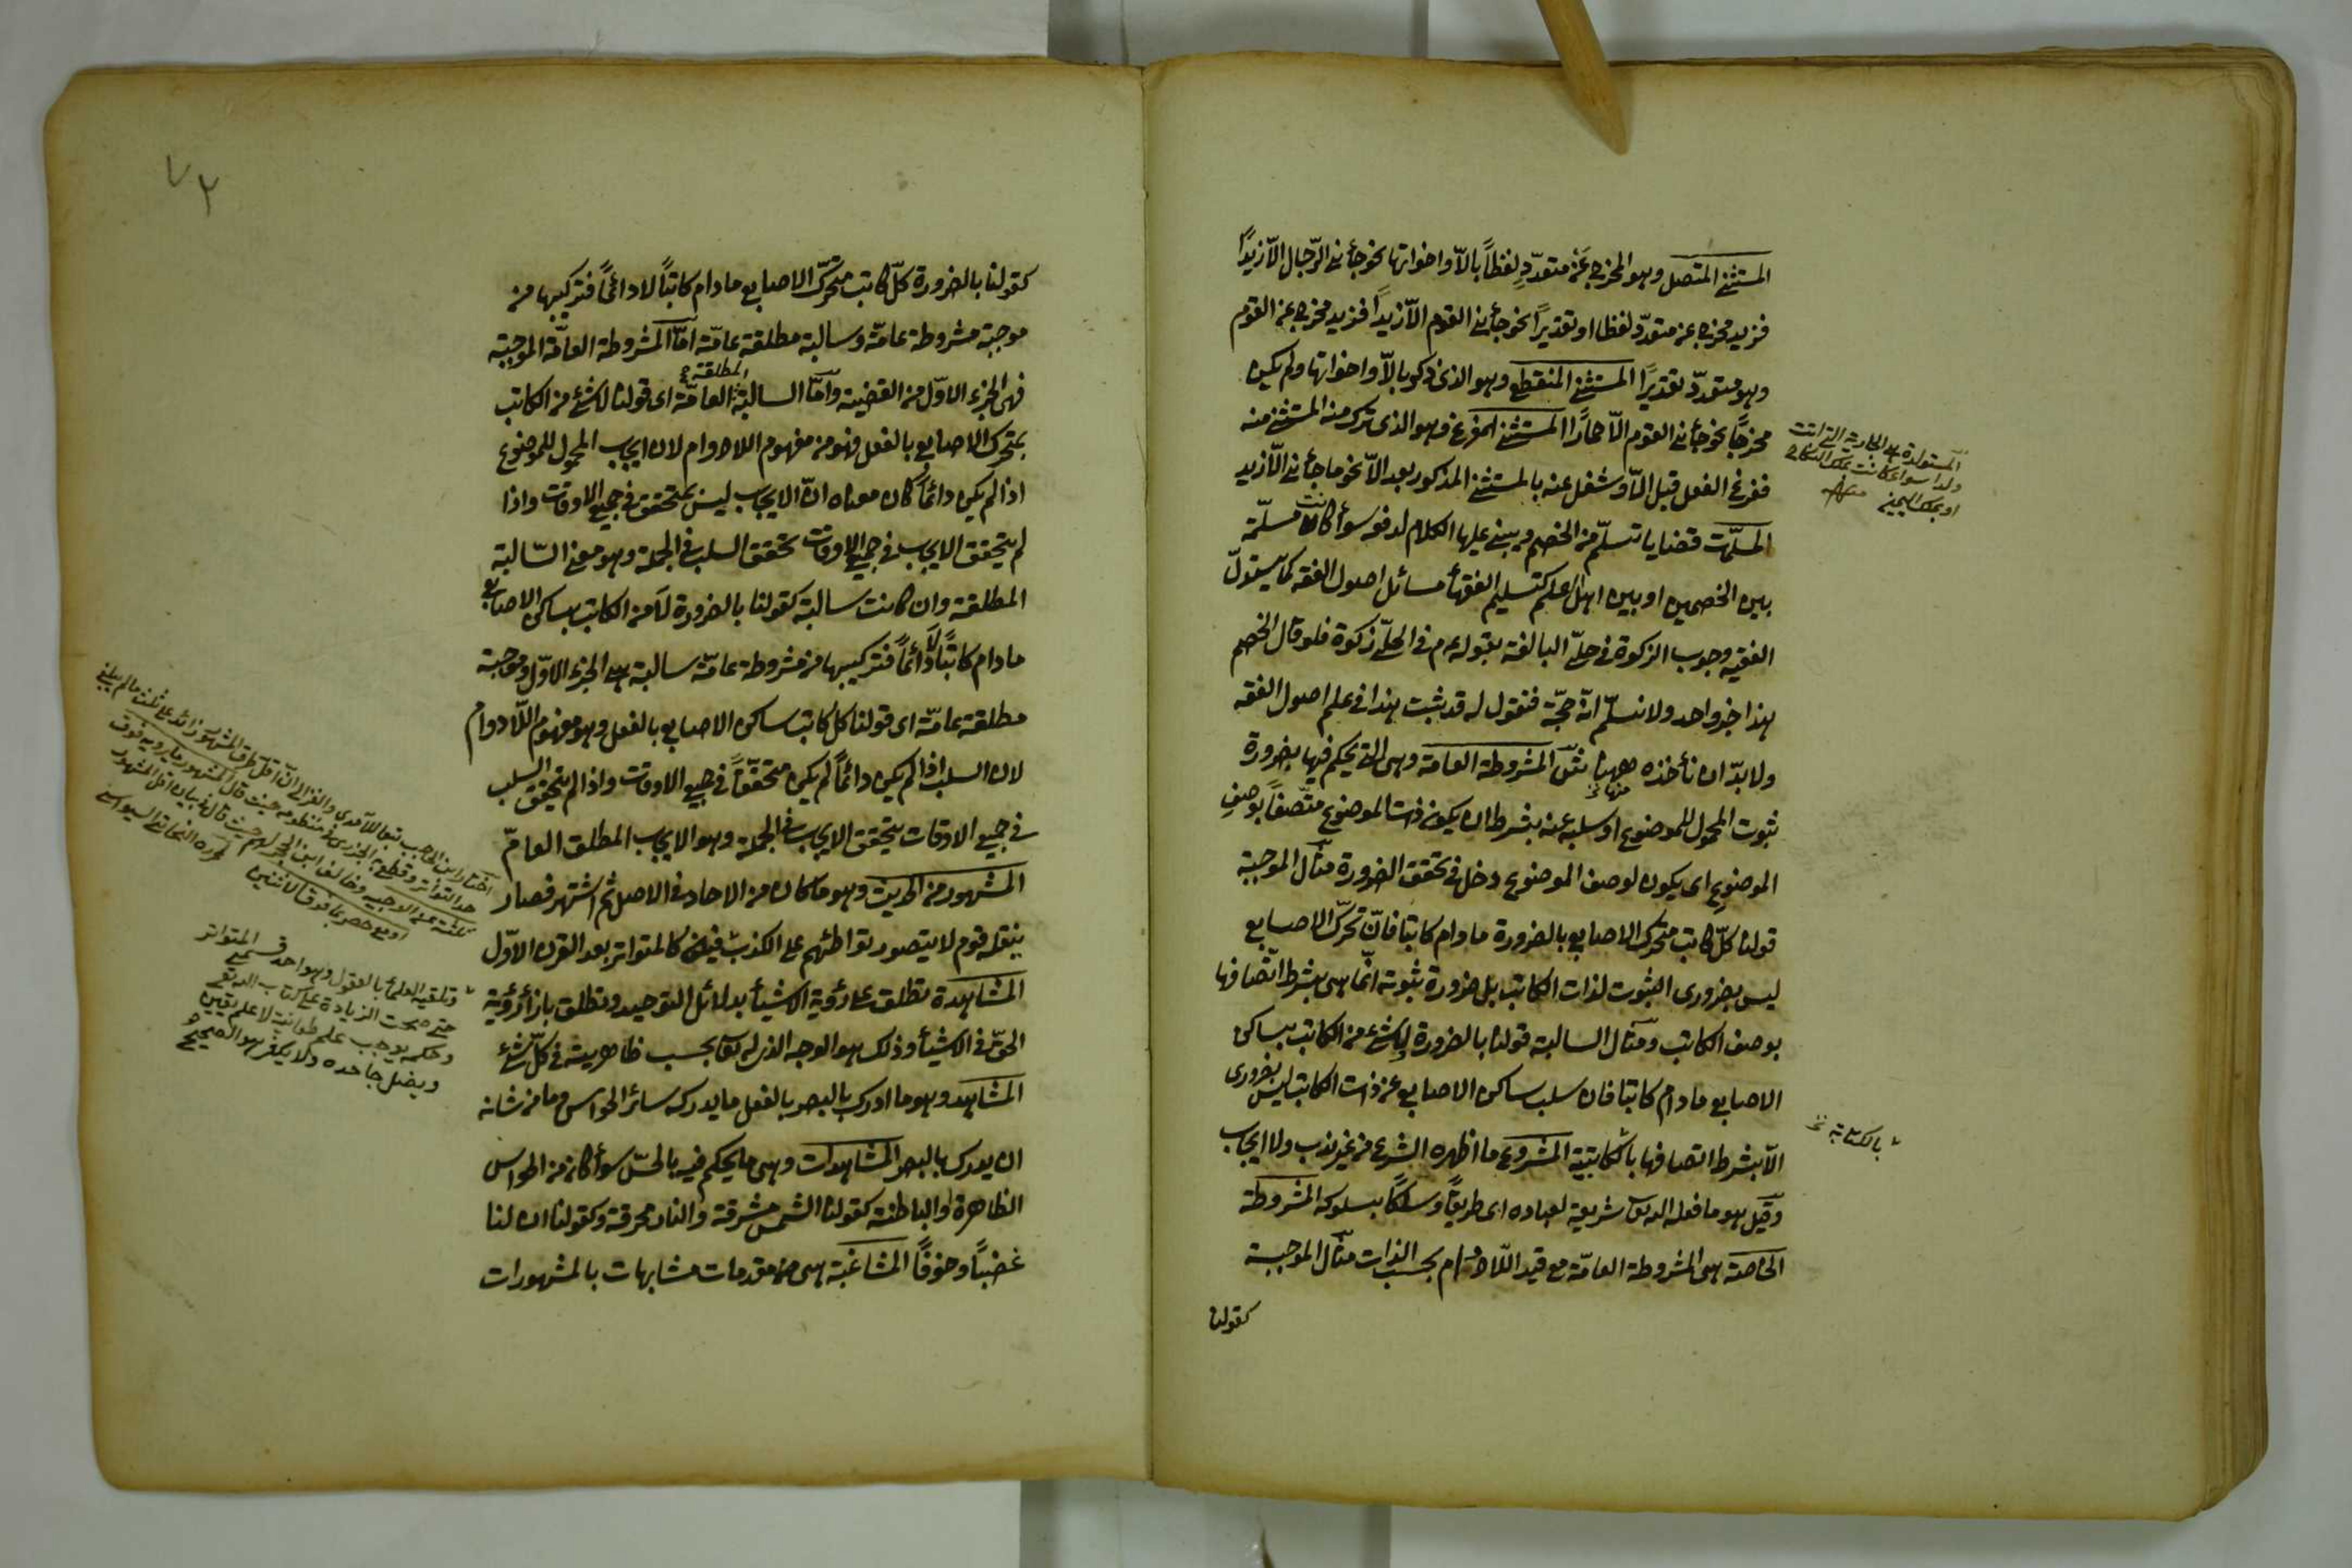 المستثنى المتصل وهو المخرج عن متعدّدٍ لفظاً بالاّ واخواتها نحو جأنى الرّجال الاّ زيداً
فزيد مخرج عن متعدّد لفظا او تقديراً نحو جأنى القوم الاّ زيداً فزيد مخرج عن القوم
وهو متعدّد تقديراً المستثنى المنقطع وهو الذى ذكر بالاّ واخواتها ولم يكن
مخرجاً نحو جأنى القوم الاّ حماراً المستثنى المفرغ وهو الذى ترك منه المستثنى منه
ففرغ الفعل قبل الاّ وشغل عنه بالمستثنى المذكور بعد الاّ نحو ما جأنى الاّ زيد
المسلّمات قضايا تسلّم من الخصم ويبنى عليها الكلام لدفعه سوأ كانت مسلّمة
بين الخصمين او بين اهل العلم كتسليم الفقهأ مسائل اصول الفقه كما يستدلّ
الفقيه وجوب الزكوة فى حلىّ البالغة بقوله عم فى الحلىّ زكوة فلو قال الخصم
هذا خبر واحد ولا نسلّم انّه حجّة فنقول له قد ثبت هذا فى علم اصول الفقه
ولا بدّ ان نأخذه ههنا المشروطة العامة وهى التى يحكم فيها بضرورة
ثبوت المحمول للموضوع او سلبه عنه بشرط ان يكون ذات الموضوع متّصفاً بوصف
الموضوع اى يكون لوصف الموضوع دخل فى تحقق الضرورة مثال الموجبة
قولنا كلّ كاتب متحرك الاصابع بالضرورة مادام كاتبا فانّ تحرّك الاصابع
ليس بضرورى الثبوت لذات الكاتب بل ضرورة ثبوته انّما هى بشرط اتّصافها
بوصف الكاتب ومثال السالبة قولنا بالضرورة لا شئ من الكاتب بساكن
الاصابع مادام كاتبا فان سلب ساكن الاصابع عن ذات الكاتب ليس بضرورى
الاّ بشرط اتصافها بالكاتبية المشروع ما اظهره الشرع من غير ندب ولا ايجاب
وقيل هو ما فعله الله شريعة لعباده اى طريقاً ومسلكاً بسلوكه المشروطة
الخاصة هى المشروطة العامّة مع قيد اللّادوام بحسب الذات مثال الموجبة
كقولنا
المستولدة هى الجارية التى اتت
ولدا سواء كانت بملك النكاح
او بملك اليمين منه
بالكتابة
٧٢
كقولنا بالضرورة كلّ كاتب متحرّك الاصابع مادام كاتباً لا دائماً فتركيبها من
موجبة مشروطة عامّة وسالبة مطلقة عامّة امّا المشروطة العامّة الموجبة
فهى الجزء الاوّل من القضية وامّا السالبة المطلقة العامّة اى قولنا لا شئ من الكاتب
بمتحرك الاصابع بالفعل فهو من مفهوم اللادوام لان ايجاب المحمول للموضوع
اذا لم يكن دائماً كان معناه انّ الايجاب ليس بمتحقق فى جميع الاوقات واذا
لم يتحقق الايجاب فى جميع الاوقات تحقق السلب فى الجملة وهو معنى السّالبة
المطلقة وان كانت سالبة كقولنا بالضرورة لا من الكاتب بساكن الاصابع
مادام كاتباً لا دائماً فتركيبها من مشروطة عامّة سالبة هى الجزء الاوّل وموجبة
مطلقة عامّة اى قولنا كل كاتب ساكن الاصابع بالفعل وهو مفهوم اللّادوام
لان السلب اذا لم يكن دائماً لم يكن متحققاً فى جميع الاوقات واذا لم يتحقق السلب
فى جميع الاوقات يتحقق الايجاب فى الجملة وهو الايجاب المطلق العامّ
المشهور من الحديث وهو ما كان من الاحاد فى الاصل ثم اشتهر فصار
ينقله قوم لا يتصور تواطئهم على الكذب فيكون كالمتواتر بعد القرن الاوّل
المشاهدة تطلق على رؤية الاشيأ بدلائل التوحيد وتطلق بازأ رؤية
الحقّ فى الاشيأ وذلك هو الوجه الذى له تع بحسب ظاهريته فى كلّ شئ
المشاهد وهو ما ادرك بالبصر بالفعل ما يدركه سائر الحواس وما من شانه
ان يدرك بالبصر المشاهدات وهى ما يحكم فيه بالحسّ سوأ كان من الحواس
الظاهرة والباطنة كقولنا الشمس مشرقة والنار محرقة وكقولنا ان لنا
غضباً وخوفاً المشاغبة هى مقدمات مشابهات بالمشهورات
اختار ابن الحاجب تبعا للآمدى والغزالى انّ اقلّ طرق المشهور زائد على ثلثة ما لم يبلغ
حد التواتر وقطع به الجزرى فى منظومه حيث قال المشهور ما يرويه فوق
ثلثة حيث قال فى بيان اقل المشهور
وتلقيه العلمأ بالقبول وهو احد قسمى المتواتر
حتى صحت الزيادة على كتاب الله تع
وحكمه يوجب علم طمانينة لا علم يقين
ويضل جاحده ولا يكفر هو الصحيح